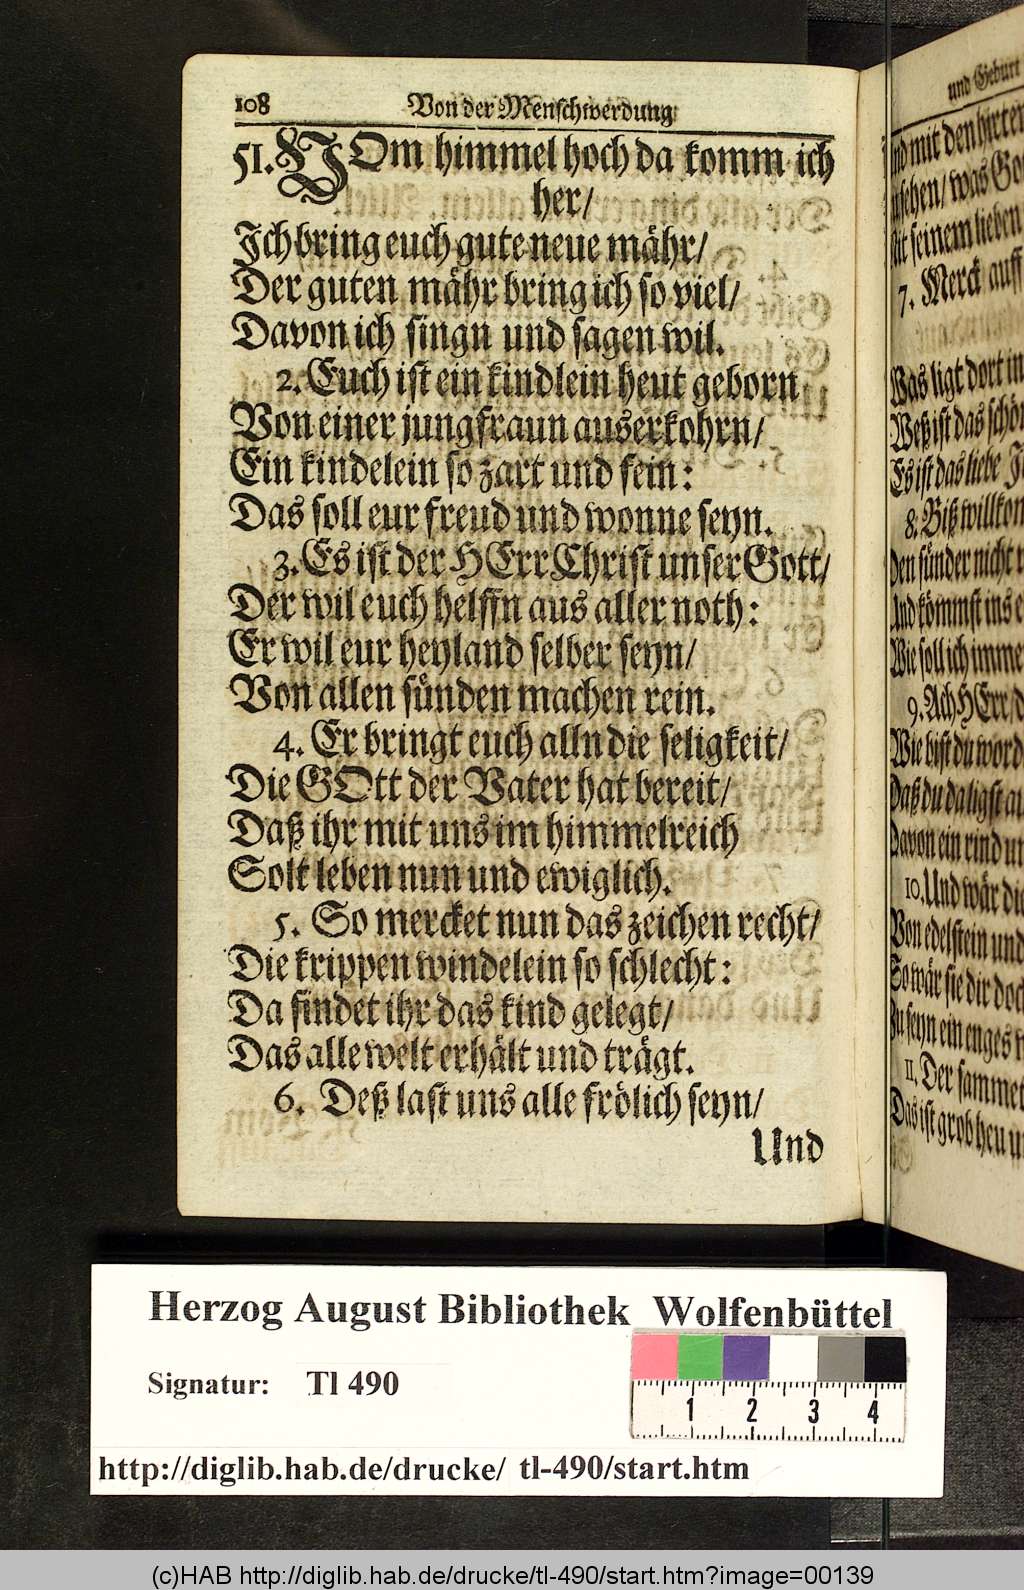 108 Von der Menschwerdung
51. VOm himmel hoch da komm ich
her/
Ich bring euch gute neue mähr/
Der guten mähr bring ich so viel/
Davon ich singn und sagen wil.
2. Euch ist ein kindlein heut geborn
Von einer jungfraun auserkohrn/
Ein kindelein so zart und fein:
Das soll eur freud und wonne seyn.
3. Es ist der HErr Christ unser Gott/
Der wil euch helffn aus aller noth:
Er wil eur heyland selber seyn/
Von allen sünden machen rein.
4. Er bringt euch alln die seligkeit/
Die GOtt der Vater hat bereit/
Daß ihr mit uns im himmelreich
Solt leben nun und ewiglich.
5. So mercket nun das zeichen recht/
Die krippen windelein so schlecht:
Da findet ihr das kind gelegt/
Das alle welt erhält und trägt.
6. Deß last uns alle frölich seyn/
Und
und Geburt
mit den hirten
sehen/ was
seinem lieben
7. Merck auff
Was ligt dort in
Weß ist das
Es ist das liebe
8. Biß
Den sünder nicht
Und kömmst ins
Wie soll ich
9. Ach HErr/
Wie bist du
Daß du da ligst
Davon ein rind
10. Und wär die
Von edelstein und
So wär sie dir doch
Zu seyn ein enges
11. Der sammet
Das ist grob heu
Herzog August Bibliothek Wolfenbüttel
Signatur: Tl 490
1 2 3 4
http://diglib.hab.de/drucke/ tl-490/start.htm
(c)HAB http://diglib.hab.de/drucke/tl-490/start.htm?image=00139